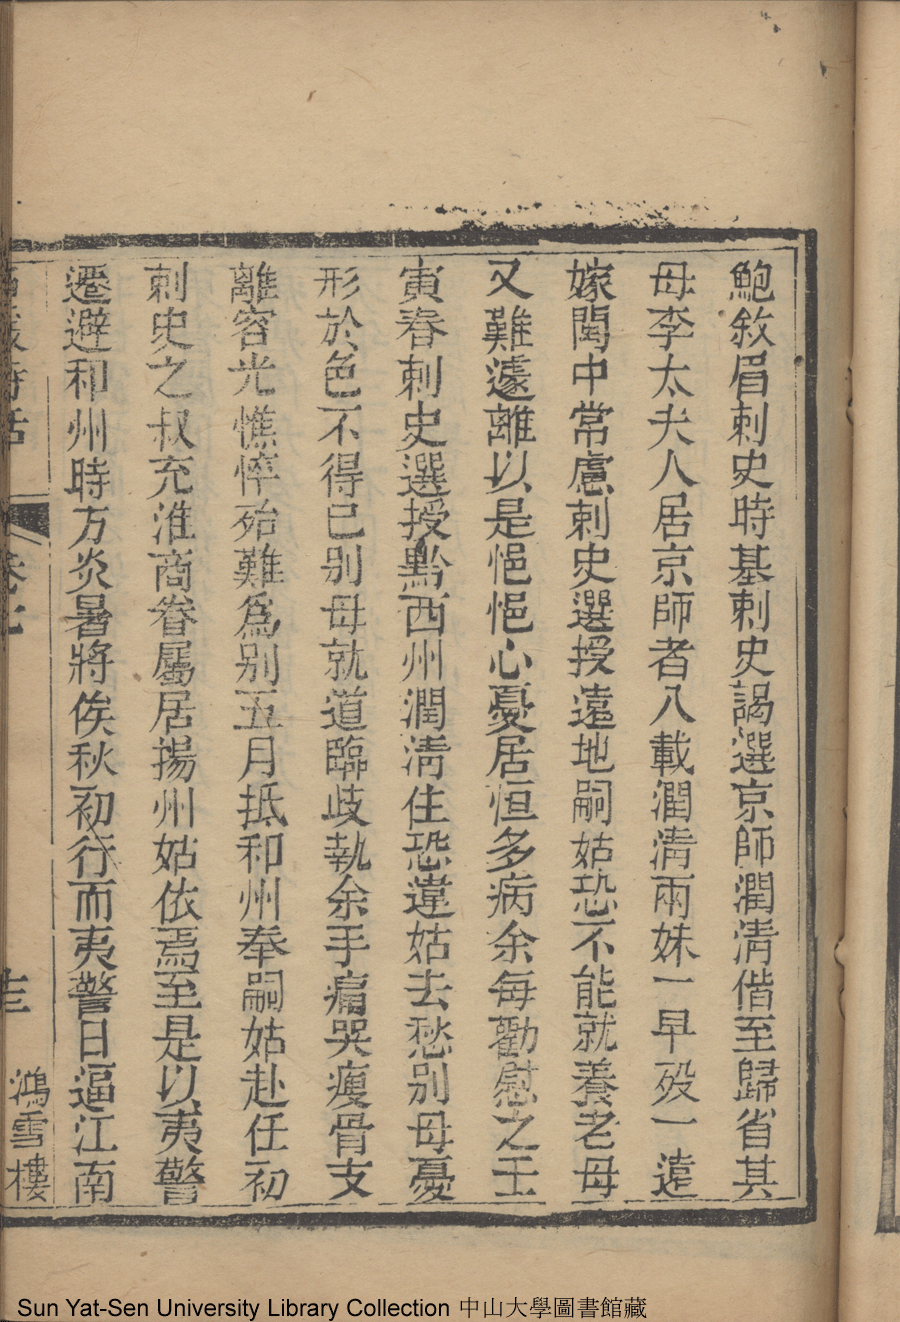 鮑敘眉刺史時基刺史謁選京師潤淸偕至歸省其
母李太夫人居京師者八載潤淸兩妹一早歿一遠
嫁閩中常慮刺史選授遠地嗣姑恐不能就養老母
又難遽離以是悒悒心憂居恒多病余每勸慰之壬
寅春刺史選授黔西州潤淸住恐違姑去愁別母憂
形於色不得已別母就道臨歧執余手痛哭瘦骨支
離容光憔悴殆難爲別五月抵和州奉嗣姑赴任初
刺史之叔充淮商眷屬居揚州姑依焉至是以夷警
遷避和州時方炎暑將俟秋初行而夷警日逼江南
詩話
卷七
鴻雪樓
Sun Yat-Sen University Library Collection 中山大學圖書館藏